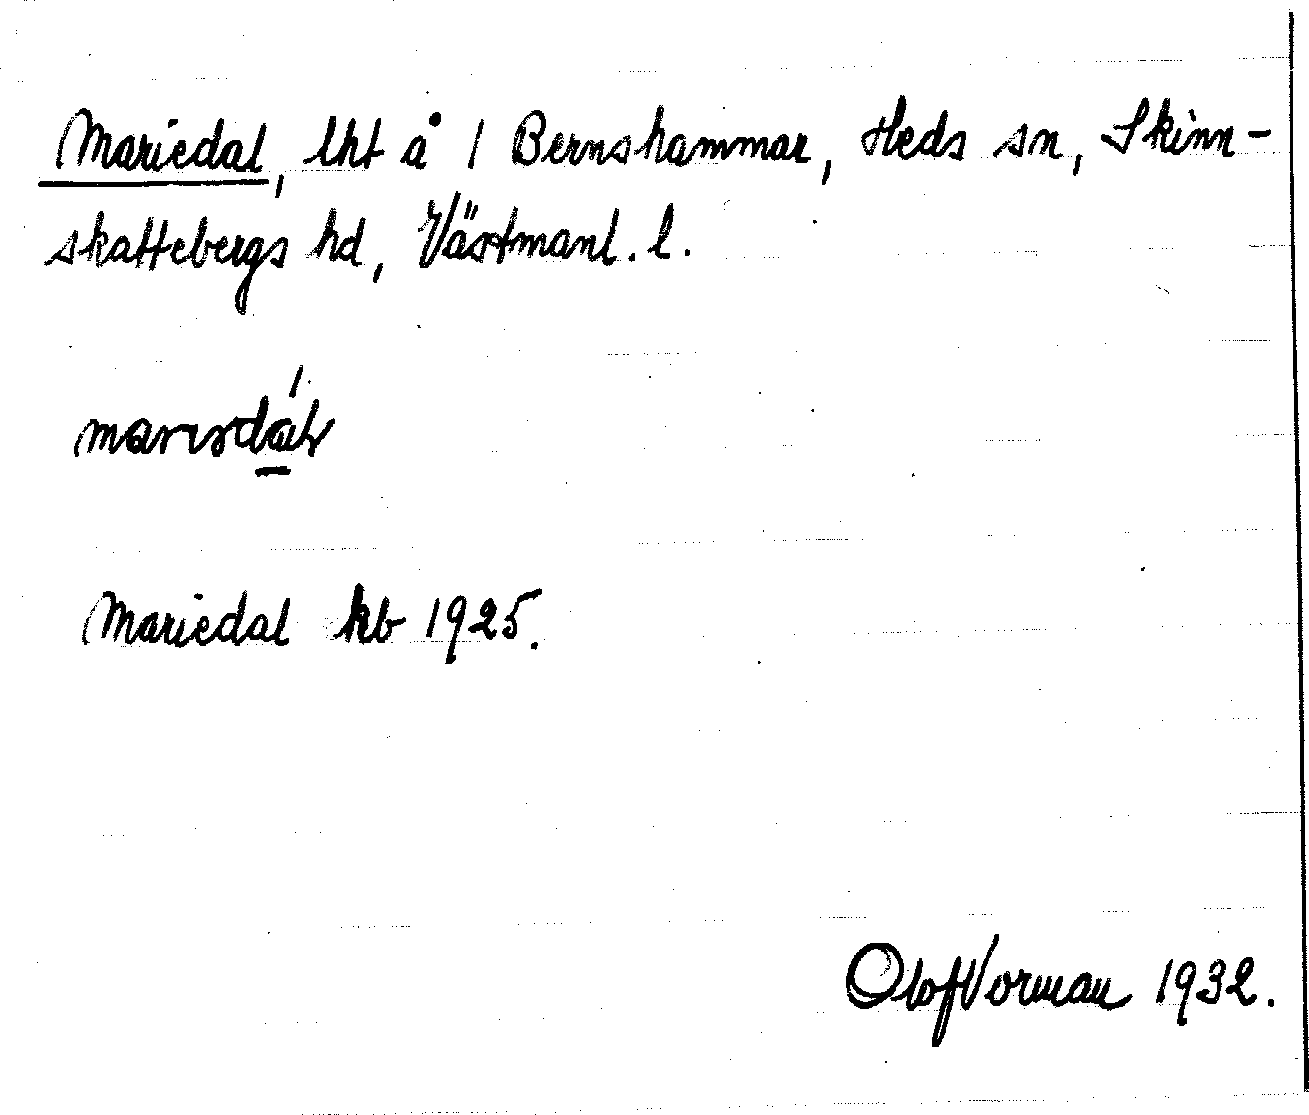 Mariedal, lht å 1 Bernshammar, Heds sn, Skinn-
skattebergs hd, Västmanl. l.
Mariedal kb 1925.
Olof Norman 1932.